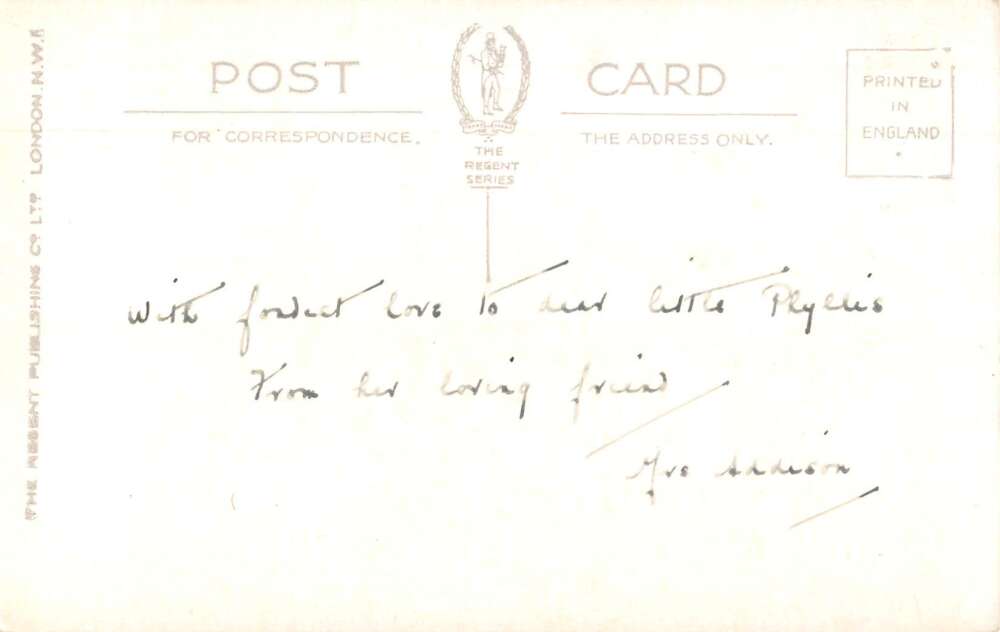 POST CARD
FOR CORRESPONDENCE.
THE ADDRESS ONLY.
THE
REGENT
SERIES
PRINTED
IN
ENGLAND
THE REGENT PUBLISHING Co LTD LONDON. N.W.1
With fondest love to dear little Phyllis
From her loving friend
Mrs Addison